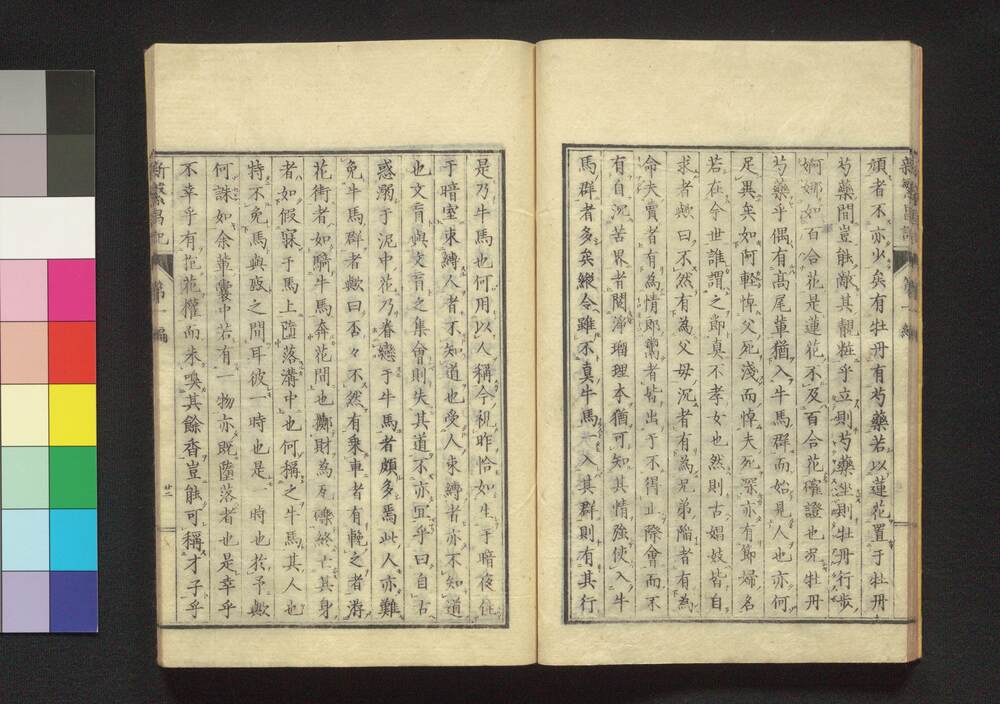 頎者不亦少矣有牡丹有芍藥若以蓮花置于牡丹
芍藥間豈能敵其靚粧乎立則芍藥坐則牡丹行歩
婀娜如百合花是蓮花不及百合花確證也况牡丹
芍藥乎偶有高尾輩猶入牛馬群而始見人也亦何
足異矣如阿輕悼父死淺而悼夫死深亦有節婦名
若在今世誰謂之節真不孝女也然則古娼妓皆自
求者歟曰不然有為父母沉者有為兄弟陥者有為
命夫賣者有為情郎鬻者皆出于不得止際會而不
有自沉苦界者閱淨瑠理本猶可知其情強使入牛
馬群者多矣縱令雖不真牛馬 入其群則有其行
是乃牛馬也何用以人稱今視昨恰如生于暗夜住
于暗室束縛人者不知道也受人束縛者亦不知道
也文盲與文盲之集會則失其道不亦宜乎曰自古
惑溺于泥中花乃眷戀于牛馬者頗多焉此人亦難
免牛馬群者歟曰否々不然有乘車者有輓之者游
花街者如騎牛馬奔花間也擲財為瓦礫終亡其身
者如假寐于馬上墮落溝中也何稱之牛馬其人也
特不免馬與 之間耳彼一時也是一時也於予歟
何誅如余輩嚢中若有一物亦既墮落者也是幸乎
不幸乎有 花 而未嗅其餘香豈能可稱才子乎
新繁昌記 第一編
廿二